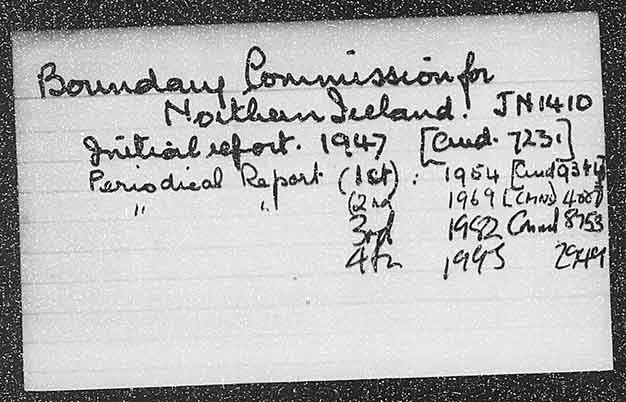 Boundary Commission for
Northern Ireland. JN1410
Initial report. 1947 [Cmd. 7231]
Periodical Report (1st): 1954 [Cmd 9314]
" " (2nd 1969 [CMND 4087]
3rd 1982 Cmnd 8753
4th 1995 2949